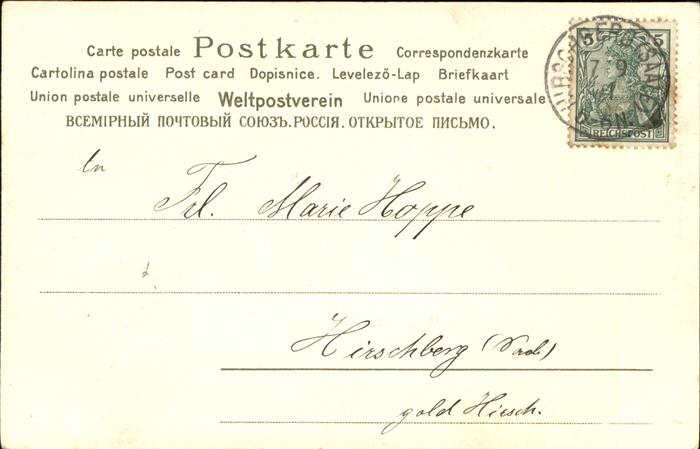 Carte postale Postkarte Correspondenzkarte
Cartolina postale Post card Dopisnice. Levelező-Lap Briefkaart
Union postale universelle Weltpostverein Unione postale universale
ВСЕМІРНЫЙ ПОЧТОВЫЙ СОЮЗЪ. РОССІЯ. ОТКРЫТОЕ ПИСЬМО.
5 5
REICHSPOST
7 9
An
Frl. Marie Hoppe
Hirschberg
gold Hirsch.